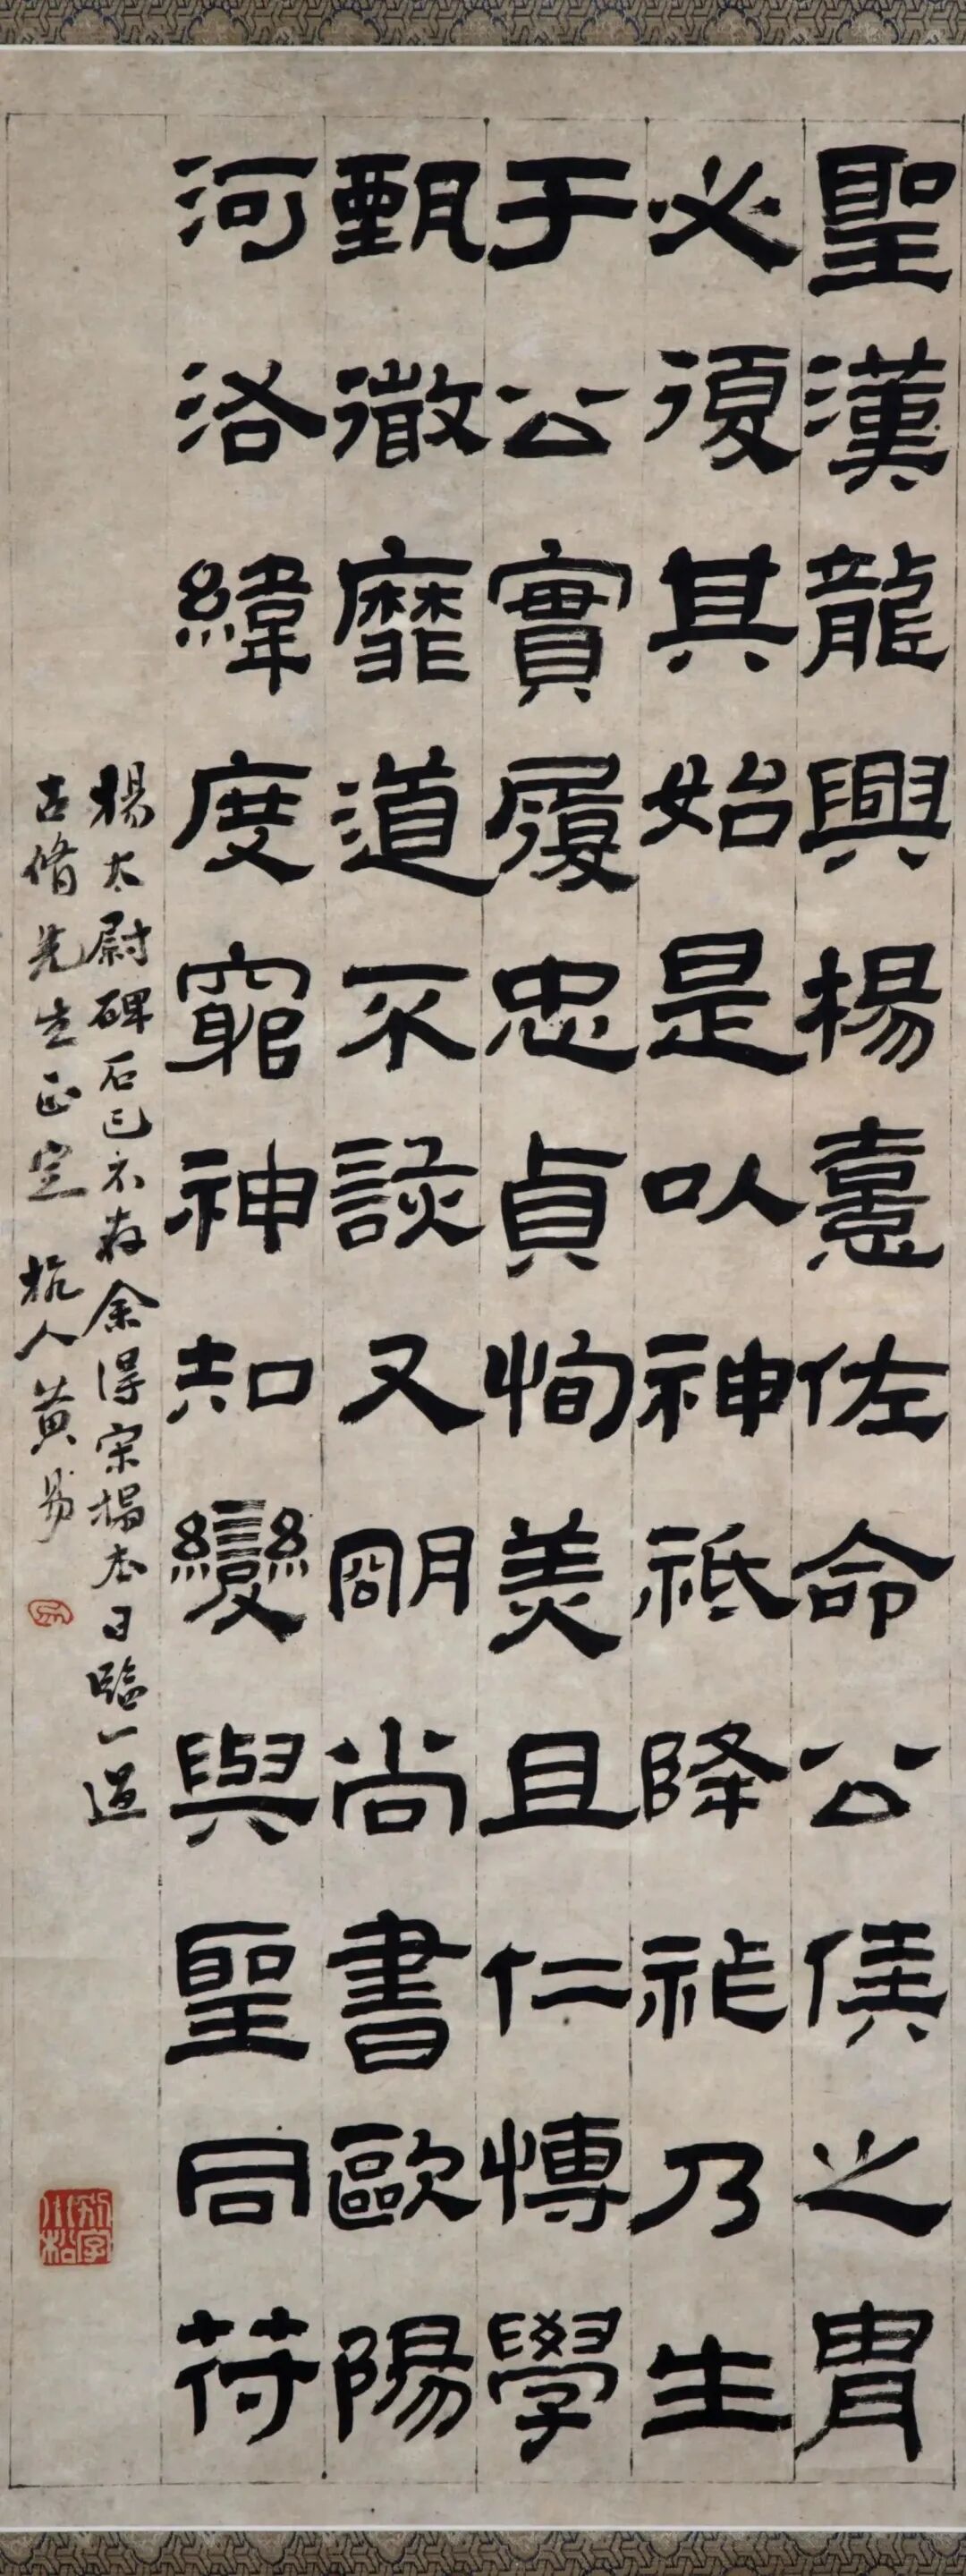 聖漢龍興楊憙佐命公侯之胄
必復其始是以神祇降祉乃生
于公實履忠貞恂美且仁愽學
甄微靡道不該又朙尚書歐陽
河洛緯度窮神知變與聖同符
楊太尉碑石已不存余得宋搨本日臨一過
古脩先生正定 杭人黃易
易
別字小松